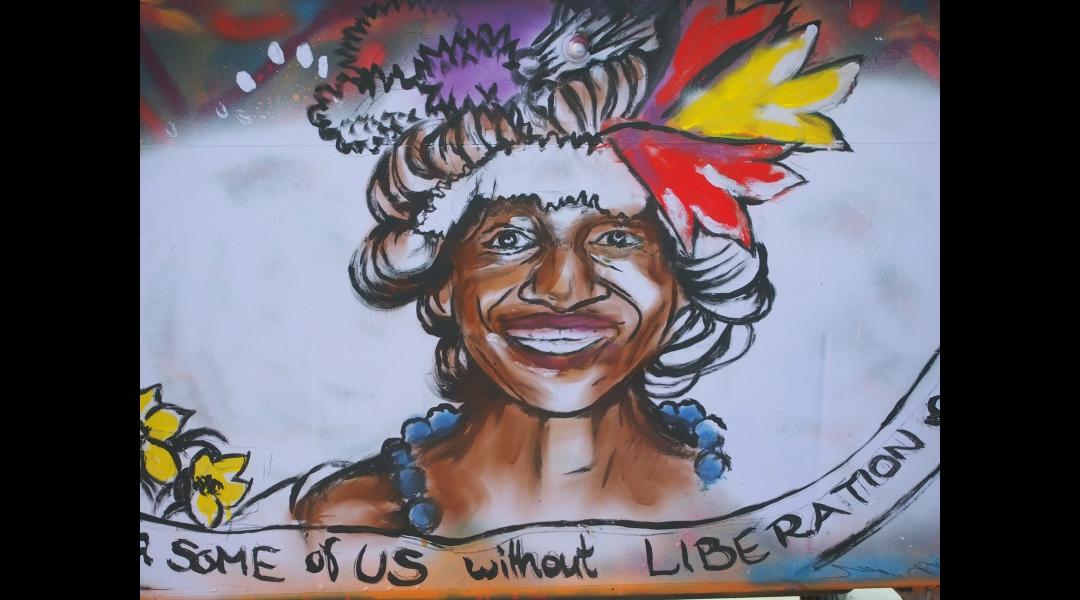 SOME of US without LIBERATION